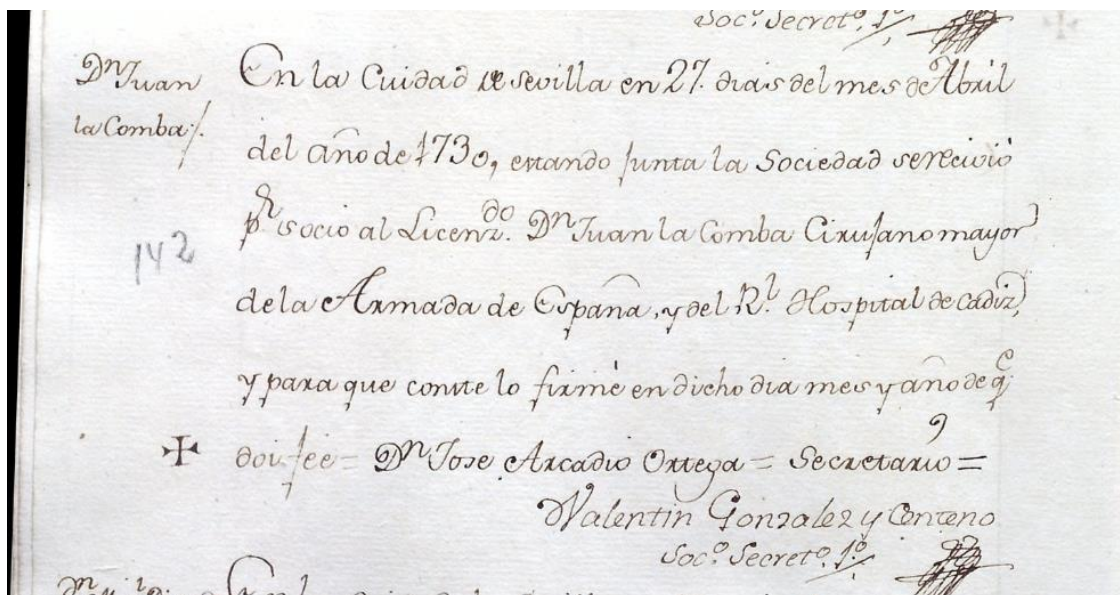 Soc.º Secret.º 1.º
Dn Juan
la Comba./.
En la Cuidad de Sevilla en 27. dias del mes de Abril
del año de 1730, estando junta la Sociedad se recivió
pr socio al Licenzdo. Dn Juan la Comba Cirujano mayor
de la Armada de España, y del Rl. Hospital de Cadiz,
142
y para que conste lo firmé en dicho dia mes y año de qe
doi fee = Dn Jose Arcadio Ortega = Secretario =
Valentin Gonzalez y Centeno
Soc.º Secret.º 1.º